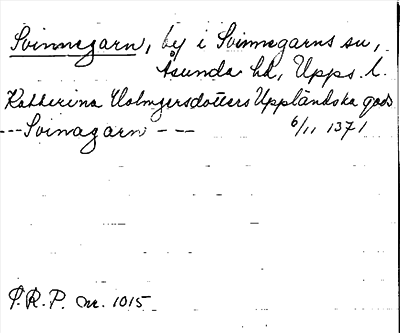 Svinnegarn, by i Svinnegarns sn,
Åsunda hd, Upps. l.
Katherina Holmgersdotters Uppländska gods
---Svinagarn --- 6/11 1371
P.R.P. nr. 1015